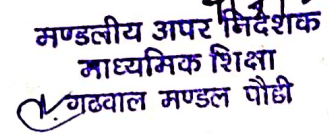 मण्डलीय अपर निदेशक
माध्यमिक शिक्षा
गढवाल मण्डल पौडी